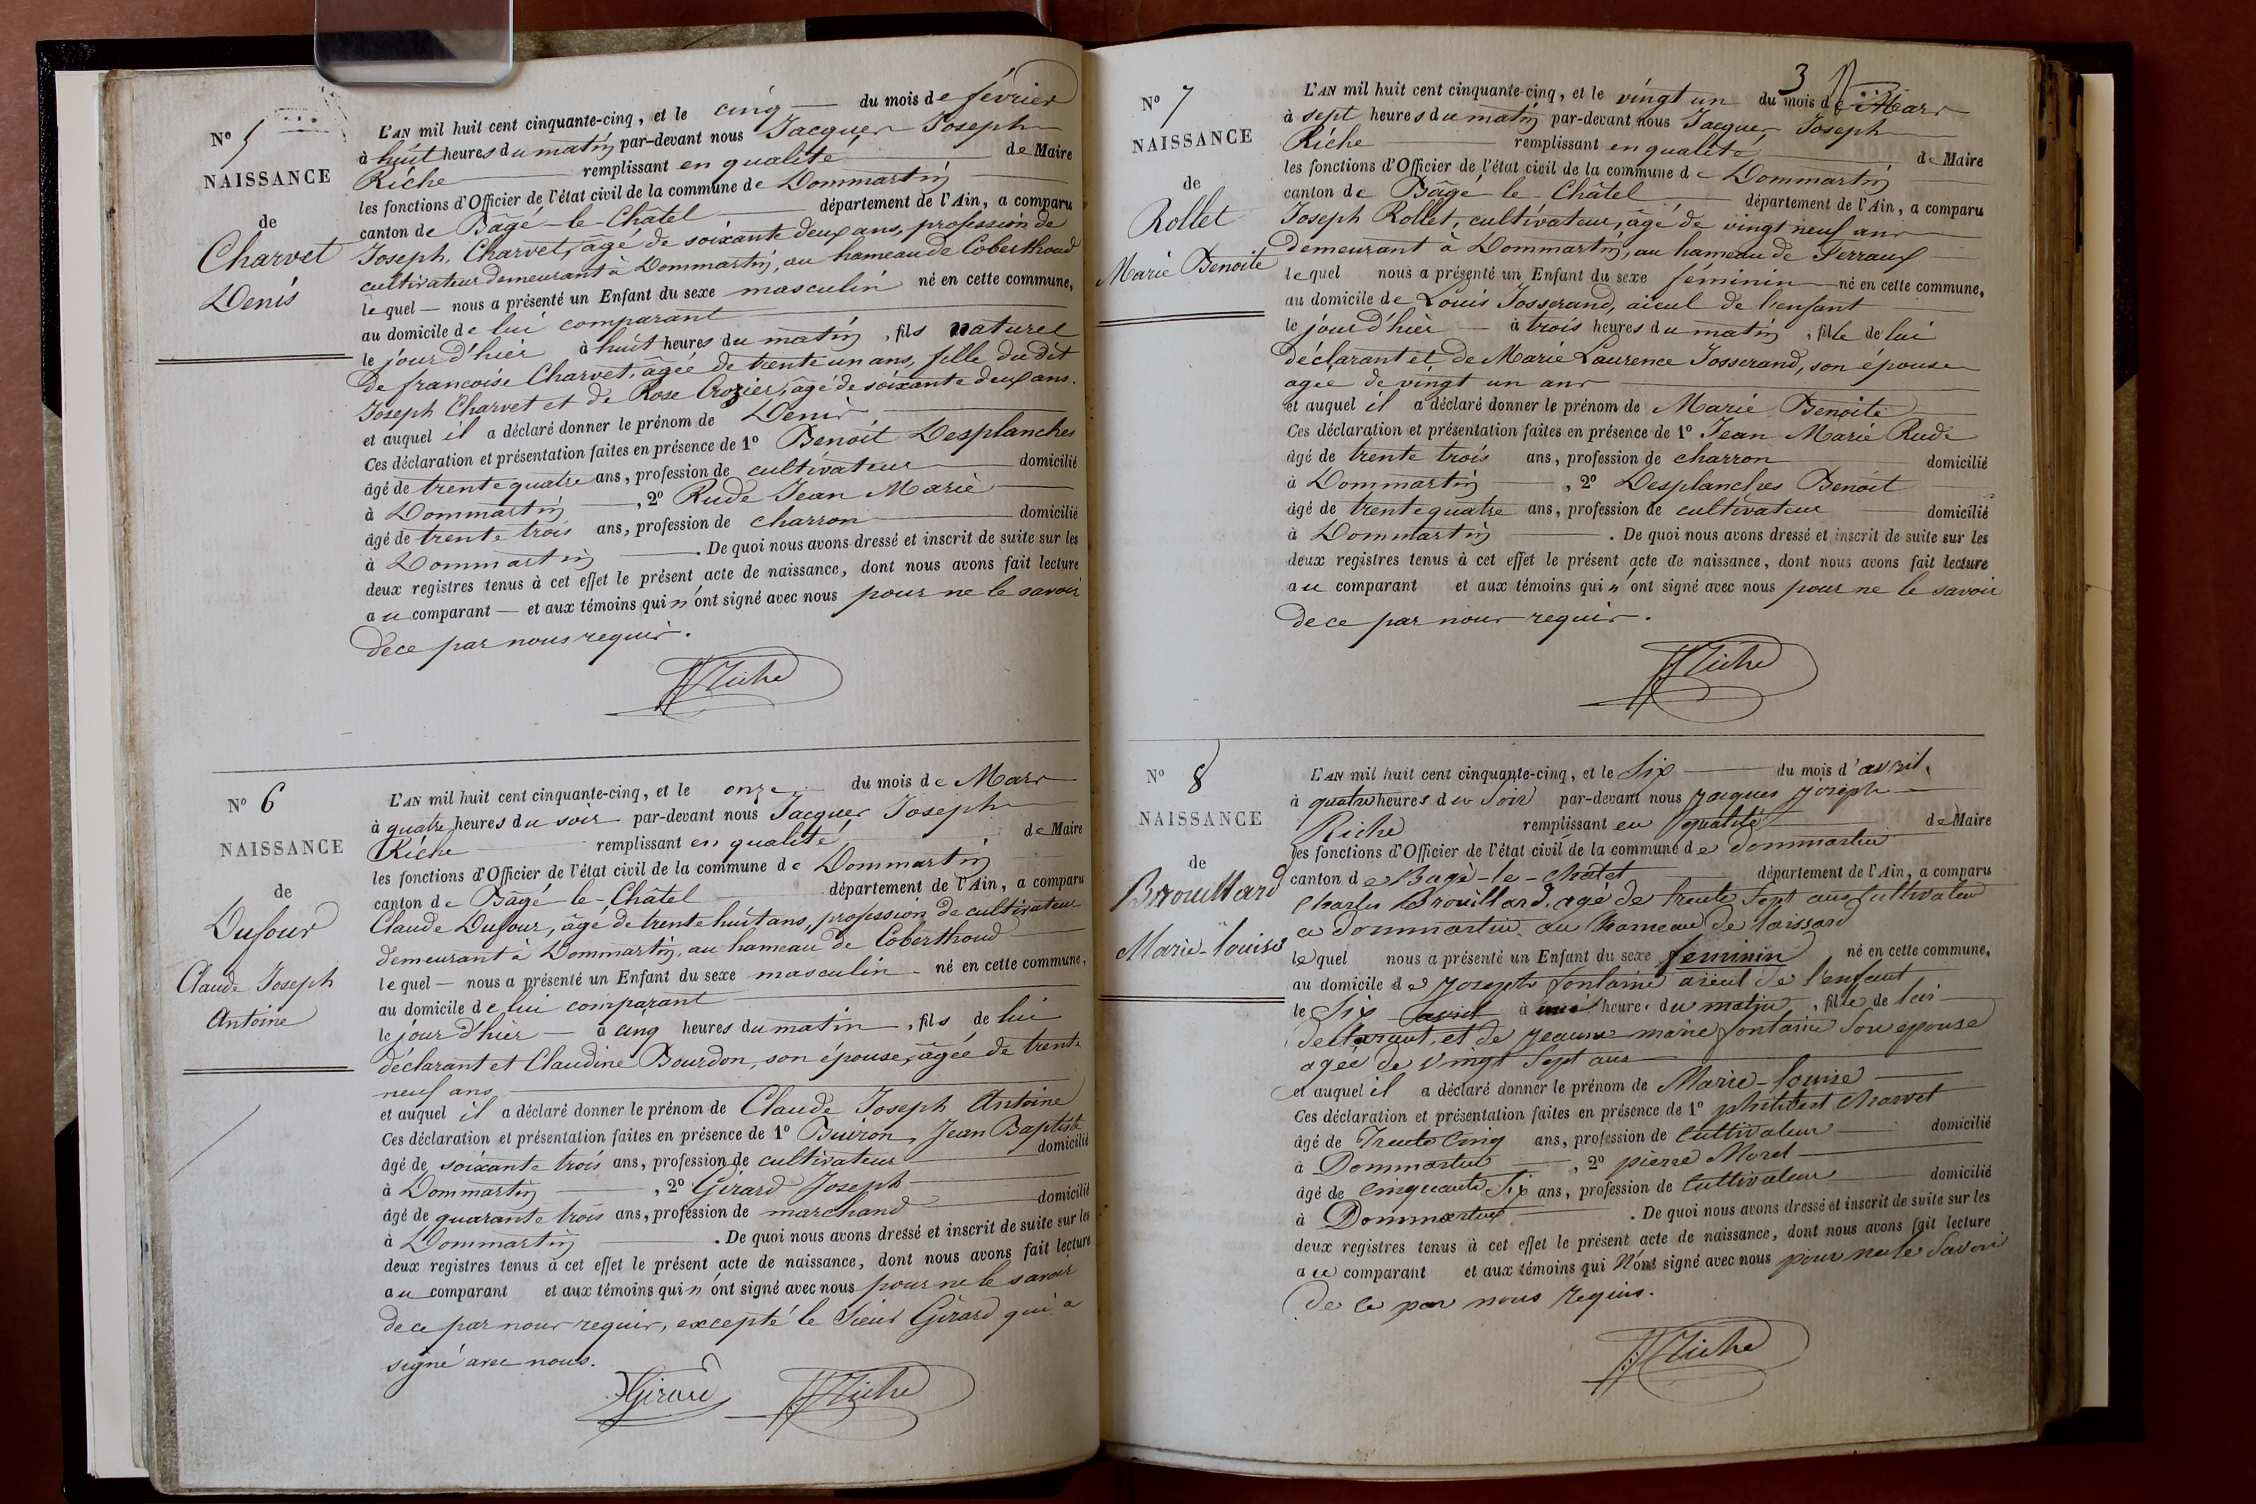 N° 5
NAISSANCE
de
Charvet
Denis
L'AN mil huit cent cinquante-cinq, et le cinq du mois de février
à huit heures du matin par-devant nous Jacques Joseph
Riche remplissant en qualité de Maire
les fonctions d'Officier de l'état civil de la commune de Dommartin
canton de Bâgé-le-Châtel département de l'Ain, a comparu
Joseph Charvet, âgé de soixante deux ans, profession de
cultivateur demeurant à Dommartin, au hameau de Coberthoud
lequel nous a présenté un Enfant du sexe masculin né en cette commune,
au domicile de lui comparant
le jour d'hier à huit heures du matin, fils naturel
de francoise Charvet, âgée de trente un ans, fille du dit
Joseph Charvet et de Rose Crozier, âgé de soixante deux ans.
et auquel il a déclaré donner le prénom de Denis
Ces déclaration et présentation faites en présence de 1° Benoit Desplanches
âgé de trente quatre ans, profession de cultivateur domicilié
à Dommartin, 2° Rude Jean Marie
âgé de trente trois ans, profession de charron domicilié
à Dommartin. De quoi nous avons dressé et inscrit de suite sur les
deux registres tenus à cet effet le présent acte de naissance, dont nous avons fait lecture
au comparant et aux témoins qui n'ont signé avec nous pour ne le savoir
de ce par nous requis.
JJRiche
N° 6
NAISSANCE
de
Dufour
Claude Joseph
Antoine
L'AN mil huit cent cinquante-cinq, et le onze du mois de Mars
à quatre heures du soir par-devant nous Jacques Joseph
Riche remplissant en qualité de Maire
les fonctions d'Officier de l'état civil de la commune de Dommartin
canton de Bâgé-le-Châtel département de l'Ain, a comparu
Claude Dufour, âgé de trente huit ans, profession de cultivateur
demeurant à Dommartin, au hameau de Coberthoud
lequel nous a présenté un Enfant du sexe masculin né en cette commune,
au domicile de lui comparant
le jour d'hier à cinq heures du matin, fils de lui
déclarant et Claudine Bourdon, son épouse, âgée de trente
neuf ans
et auquel il a déclaré donner le prénom de Claude Joseph Antoine
Ces déclaration et présentation faites en présence de 1° Buiron, Jean Baptiste
âgé de soixante trois ans, profession de cultivateur domicilié
à Dommartin, 2° Girard Joseph
âgé de quarante trois ans, profession de marchand domicilié
à Dommartin. De quoi nous avons dressé et inscrit de suite sur les
deux registres tenus à cet effet le présent acte de naissance, dont nous avons fait lecture
au comparant et aux témoins qui n'ont signé avec nous pour ne le savoir
de ce par nous requis, excepté le Sieur Girard qui a
signé avec nous.
Girard JJRiche
3
N° 7
NAISSANCE
de
Rollet
Marie Benoite
L'AN mil huit cent cinquante-cinq, et le vingt un du mois de Mars
à sept heures du matin par-devant nous Jacques Joseph
Riche remplissant en qualité de Maire
les fonctions d'Officier de l'état civil de la commune de Dommartin
canton de Bâgé-le-Châtel département de l'Ain, a comparu
Joseph Rollet, cultivateur, âgé de vingt neuf ans
demeurant à Dommartin, au hameau de Ferraux
lequel nous a présenté un Enfant du sexe féminin né en cette commune,
au domicile de Louis Josserand, aïeul de l'enfant
le jour d'hier à trois heures du matin, fille de lui
déclarant et de Marie Laurence Josserand, son épouse
agée de vingt un ans
et auquel il a déclaré donner le prénom de Marie Benoite
Ces déclaration et présentation faites en présence de 1° Jean Marie Rude
âgé de trente trois ans, profession de charron domicilié
à Dommartin, 2° Desplanches Benoit
âgé de trente quatre ans, profession de cultivateur domicilié
à Dommartin. De quoi nous avons dressé et inscrit de suite sur les
deux registres tenus à cet effet le présent acte de naissance, dont nous avons fait lecture
au comparant et aux témoins qui n'ont signé avec nous pour ne le savoir
de ce par nous requis.
JJRiche
N° 8
NAISSANCE
de
Brouillard
Marie-Louise
L'AN mil huit cent cinquante-cinq, et le Six du mois d'avril
à quatre heures du Soir par-devant nous Jacques Joseph
Riche remplissant en qualité de Maire
les fonctions d'Officier de l'état civil de la commune de Dommartin
canton de Bagé-le-Châtel département de l'Ain, a comparu
Charles Brouillard, agé de trente Sept ans Cultivateur
a Dommartin au hameau de laissard
lequel nous a présenté un Enfant du sexe feminin né en cette commune,
au domicile de Joseph fontaine aieul de l'enfant
le Six avril à une heure du matin, fille de lui
declarant, et de Jeanne marie fontaine Son epouse
agée de Vingt Sept ans
et auquel il a déclaré donner le prénom de Marie-louise
Ces déclaration et présentation faites en présence de 1° philibert Charvet
âgé de Trente Cinq ans, profession de Cultivateur domicilié
à Dommartin, 2° pierre Morel
âgé de Cinquante Six ans, profession de Cultivateur domicilié
à Dommartin. De quoi nous avons dressé et inscrit de suite sur les
deux registres tenus à cet effet le présent acte de naissance, dont nous avons fait lecture
au comparant et aux témoins qui N'ont signé avec nous pour ne le Savoir
de ce par nous requis.
JJRiche